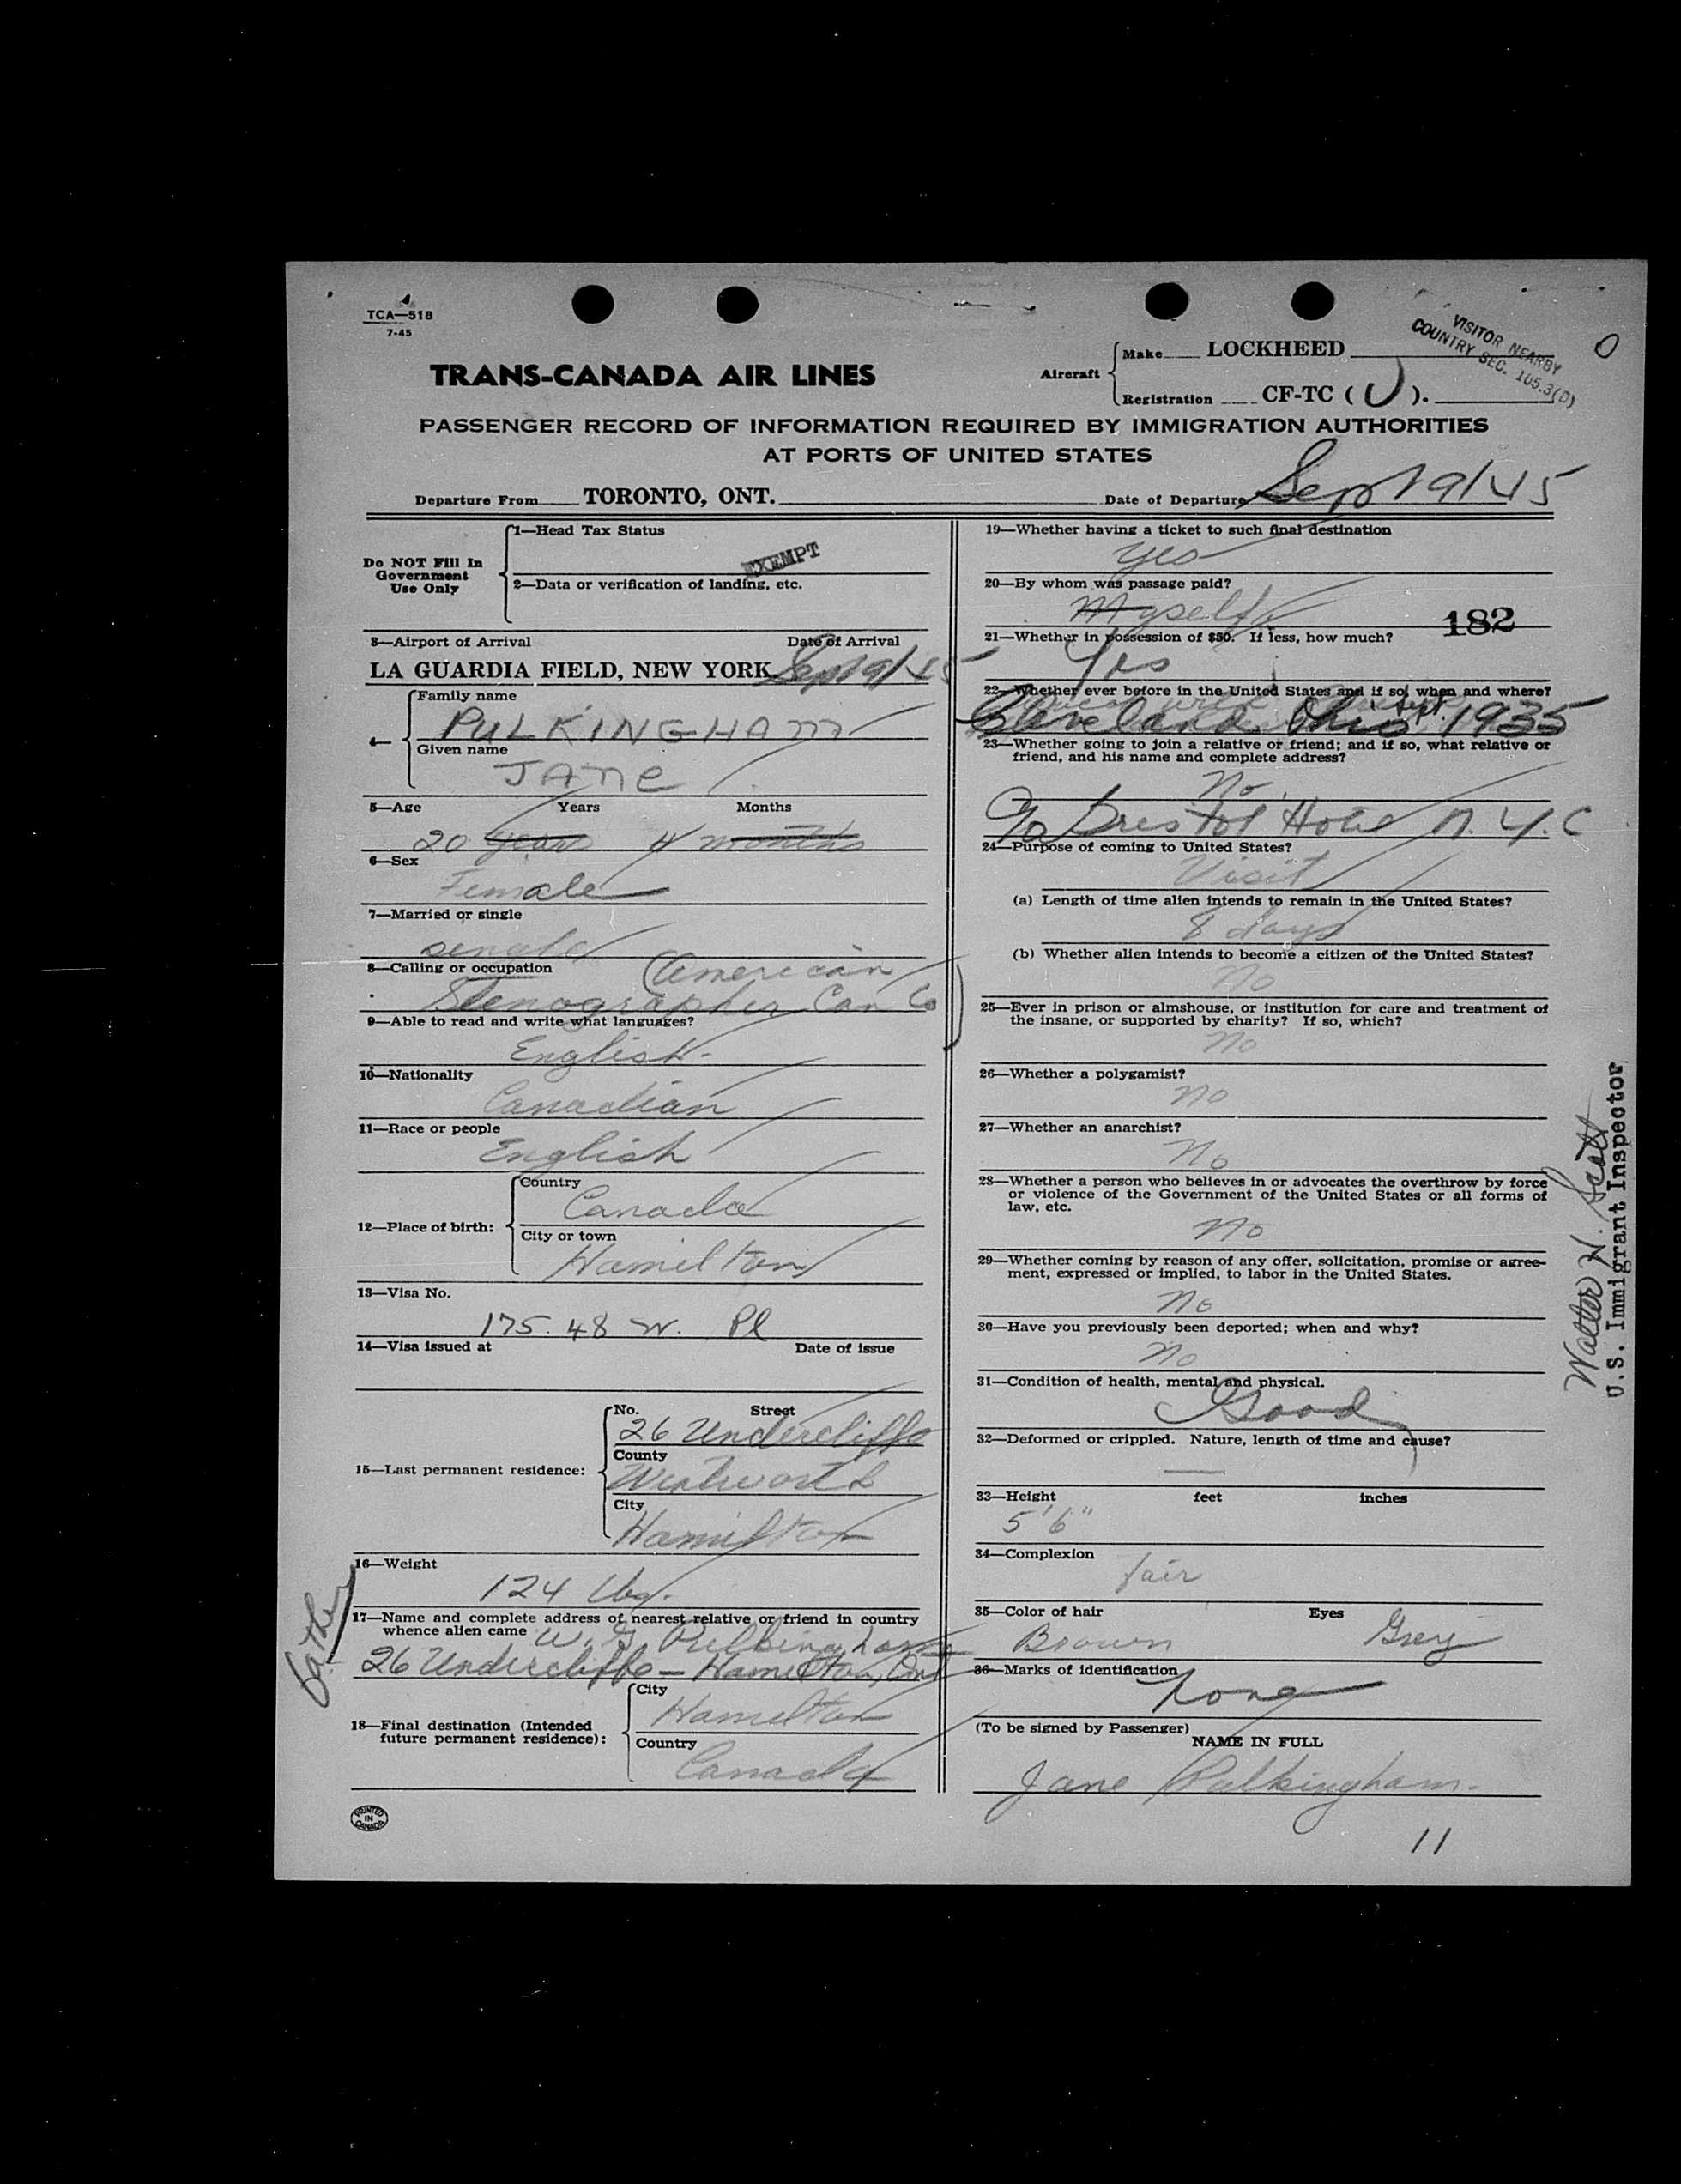 TCA—518
7-45
TRANS-CANADA AIR LINES
Aircraft
Make LOCKHEED
Registration CF-TC ( U ).
VISITOR NEARBY
COUNTRY SEC. 105.3(D)
PASSENGER RECORD OF INFORMATION REQUIRED BY IMMIGRATION AUTHORITIES
AT PORTS OF UNITED STATES
Departure From TORONTO, ONT. Date of Departure Sept 9/45
Do NOT Fill In
Government
Use Only
1—Head Tax Status
EXEMPT
2—Data or verification of landing, etc.
3—Airport of Arrival Date of Arrival
LA GUARDIA FIELD, NEW YORK Sept 9/45
4—
Family name
PULKINGHAM
Given name
JANE
5—Age Years Months
20 years 4 months
6—Sex
Female
7—Married or single
single
8—Calling or occupation (American
Stenographer Can Co
9—Able to read and write what languages?
English
10—Nationality
Canadian
11—Race or people
English
12—Place of birth:
Country
Canada
City or town
Hamilton
13—Visa No.
175.48 W. Pl
14—Visa issued at Date of issue
15—Last permanent residence:
No. Street
26 Undercliffe
County
Wentworth
City
Hamilton
16—Weight
124 lbs.
father
17—Name and complete address of nearest relative or friend in country
whence alien came W. G Pulkingham
26 Undercliffe — Hamilton, Ont
18—Final destination (Intended
future permanent residence):
City
Hamilton
Country
Canada
PRINTED
IN
CANADA
19—Whether having a ticket to such final destination
yes
20—By whom was passage paid?
Myself
182
21—Whether in possession of $50. If less, how much?
Yes
22—Whether ever before in the United States and if so, when and where?
Cleveland Ohio Sept. 1935
23—Whether going to join a relative or friend; and if so, what relative or
friend, and his name and complete address?
No.
To Bristol Hotel N.Y.C
24—Purpose of coming to United States?
Visit
(a) Length of time alien intends to remain in the United States?
8 days
(b) Whether alien intends to become a citizen of the United States?
No
25—Ever in prison or almshouse, or institution for care and treatment of
the insane, or supported by charity? If so, which?
No
26—Whether a polygamist?
no
27—Whether an anarchist?
No
28—Whether a person who believes in or advocates the overthrow by force
or violence of the Government of the United States or all forms of
law, etc.
No
29—Whether coming by reason of any offer, solicitation, promise or agree-
ment, expressed or implied, to labor in the United States.
no
30—Have you previously been deported; when and why?
No
31—Condition of health, mental and physical.
Good
32—Deformed or crippled. Nature, length of time and cause?
33—Height feet inches
5'6"
34—Complexion
fair
35—Color of hair Eyes
Brown Grey
36—Marks of identification
none
(To be signed by Passenger)
NAME IN FULL
Jane Pulkingham.
11
Walter H. Scott
U.S. Immigrant Inspector